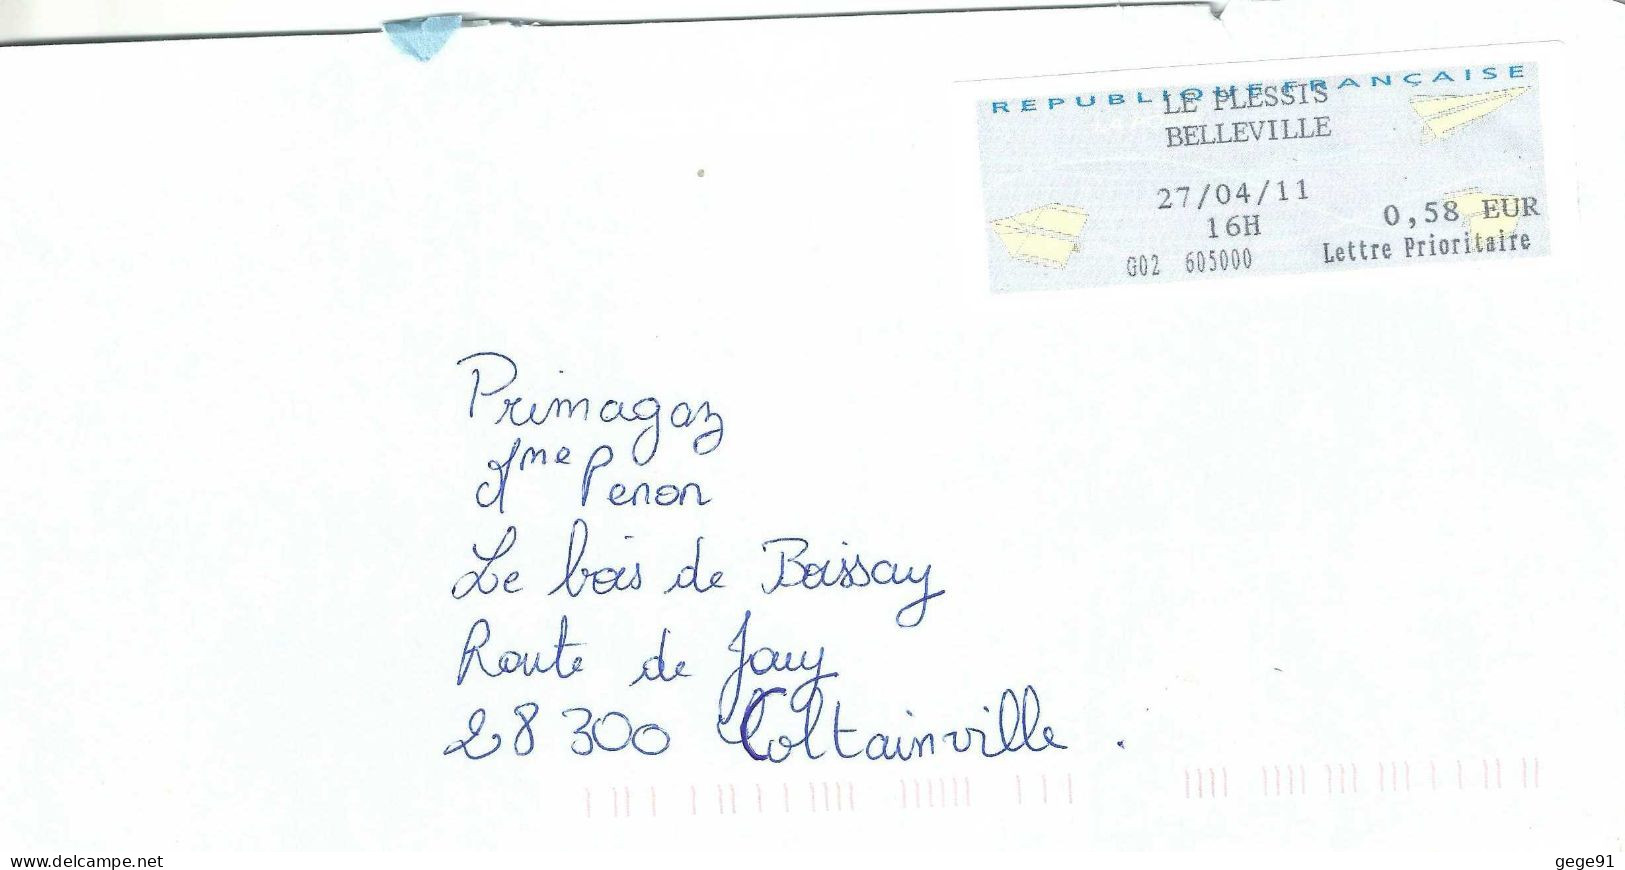 REPUBLIQUE FRANÇAISE
LE PLESSIS
BELLEVILLE
27/04/11
16H
0,58 EUR
G02 605000
Lettre Prioritaire
Primagaz
Mme Penon
Le bois de Boissay
Route de Jouy
28 300 Coltainville.
www.delcampe.net
gege91